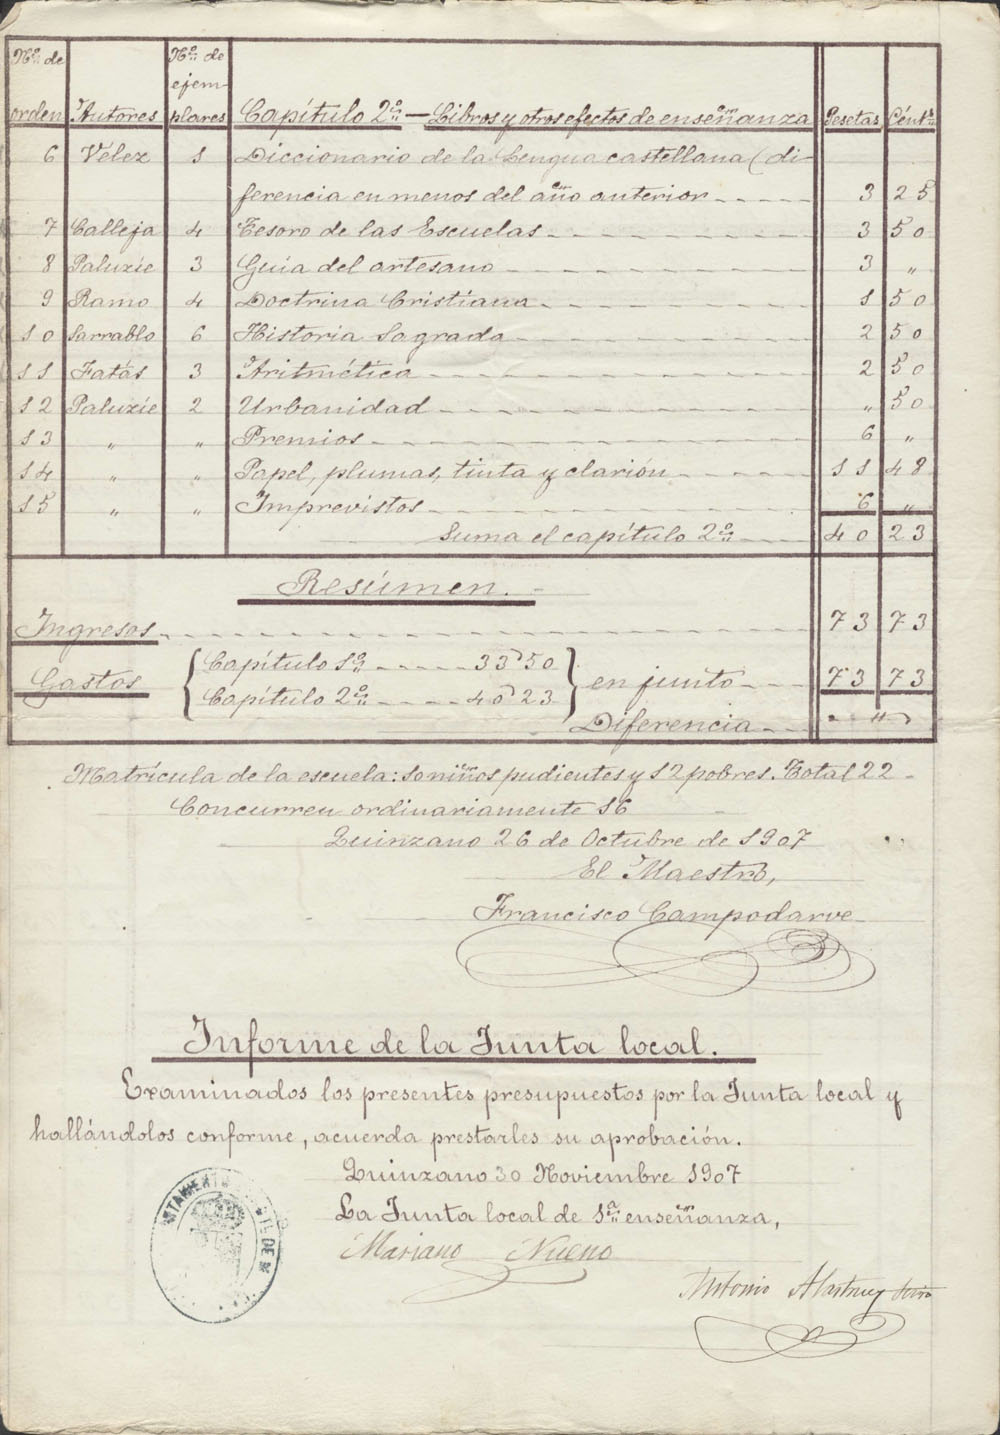 Nº de orden | Autores | Nº de ejemplares | Capítulo 2º — Libros y otros efectos de enseñanza | Pesetas | Cénts
6 Vélez 1 Diccionario de la Lengua castellana (di-
ferencia en menos del año anterior 3 25
7 Calleja 4 Tesoro de las Escuelas 3 50
8 Paluzíe 3 Guía del artesano 3 "
9 Ramo 4 Doctrina Cristiana 1 50
10 Sarrablo 6 Historia Sagrada 2 50
11 Fatás 3 Aritmética 2 50
12 Paluzíe 2 Urbanidad " 50
13 " " Premios 6 "
14 " " Papel, plumas, tinta y clarión 11 48
15 " " Imprevistos 6 "
Suma el capítulo 2º 40 23
Resúmen.
Ingresos 73 73
Gastos { Capítulo 1º 33'50
Capítulo 2º 40'23 } en junto 73 73
Diferencia "
Matrícula de la escuela: 10 niños pudientes y 12 pobres. Total 22
Concurren ordinariamente 16
Quinzano 26 de Octubre de 1907
El Maestro,
Francisco Campodarve
Informe de la Junta local.
Examinados los presentes presupuestos por la Junta local y
hallándolos conforme, acuerda prestarles su aprobación.
Quinzano 30 Noviembre 1907
La Junta local de 1ª enseñanza,
Mariano Nueno
Antonio Alastruey